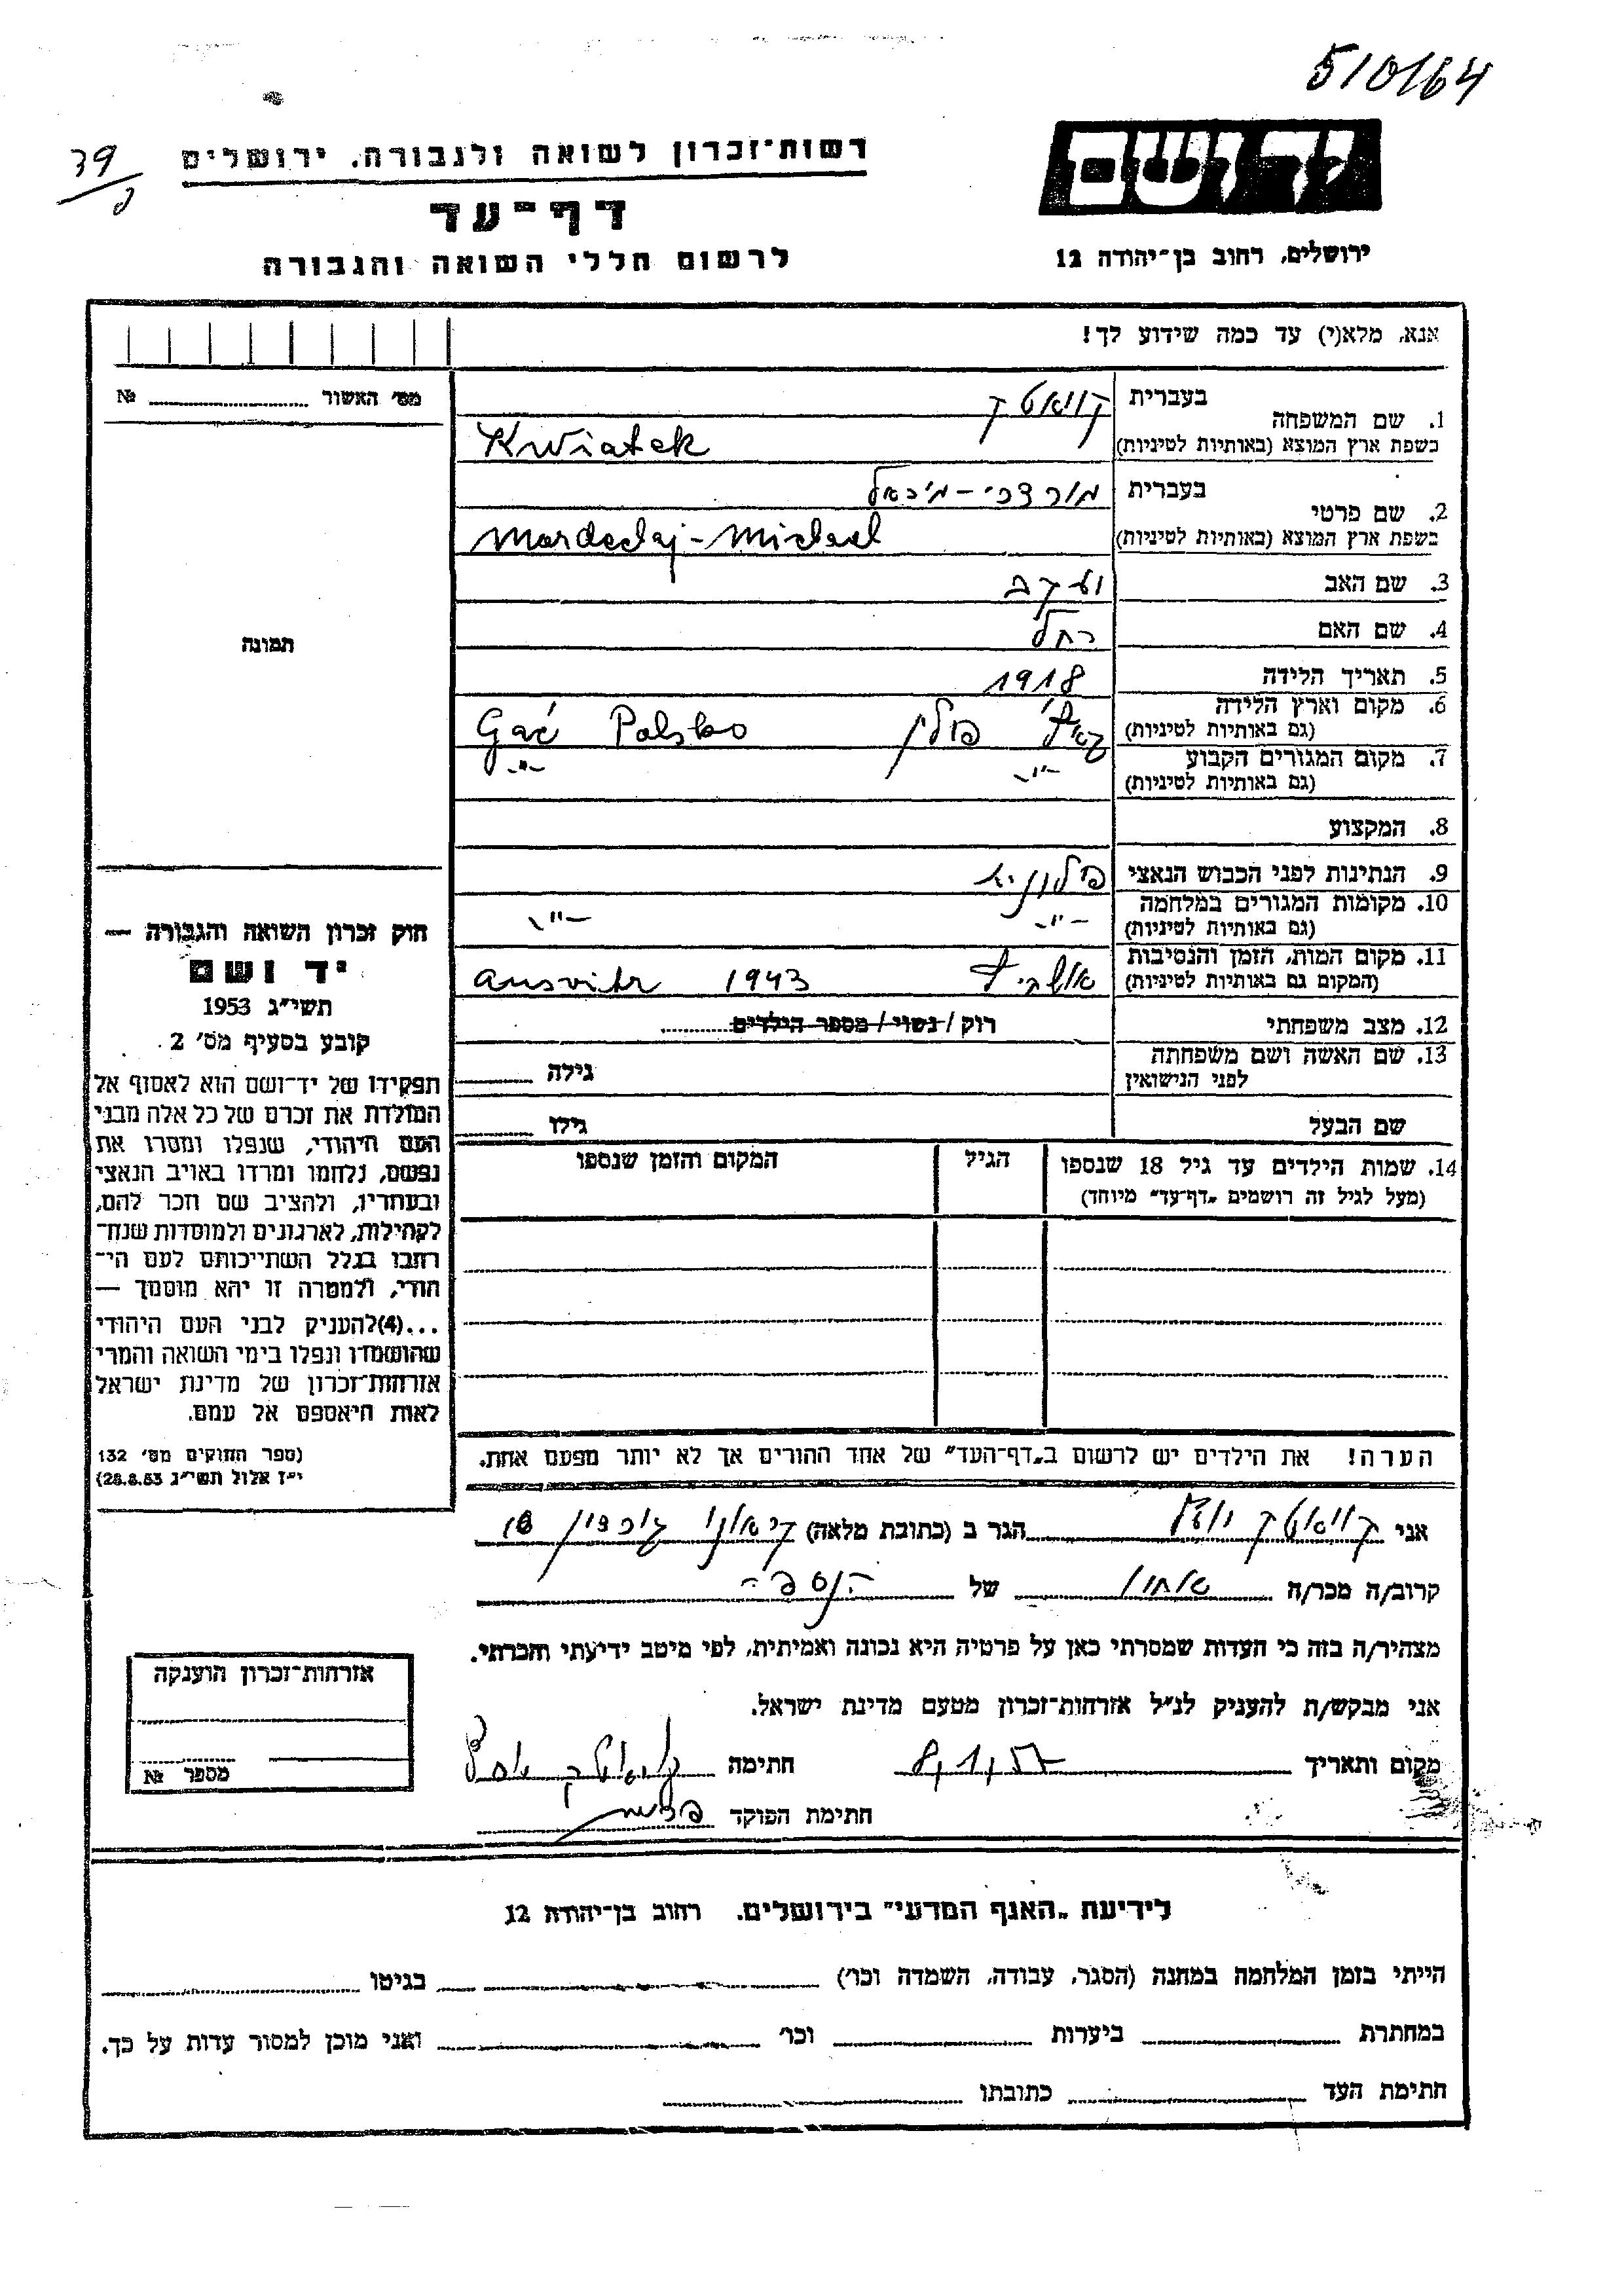 510164
רשות־זכרון לשואה ולגבורה, ירושלים
יד ושם
דף־עד
לרשום חללי השואה והגבורה
ירושלים, רחוב בן־יהודה 12
אנא, מלא(י) עד כמה שידוע לך!
מס׳ האשור № ........
1. שם המשפחה בעברית קוואטק
בשפת ארץ המוצא (באותיות לטיניות) Kwiatek
2. שם פרטי בעברית מורדכי-מיכאל
בשפת ארץ המוצא (באותיות לטיניות) Mordechaj-Michael
3. שם האב יעקב
4. שם האם רחל
תמונה
5. תאריך הלידה 1918
6. מקום וארץ הלידה (גם באותיות לטיניות) פולין Gać Polsko
7. מקום המגורים הקבוע (גם באותיות לטיניות) -"- -"-
8. המקצוע
9. הנתינות לפני הכבוש הנאצי פולונית
10. מקומות המגורים במלחמה (גם באותיות לטיניות) -"- -"-
11. מקום המות, הזמן והנסיבות (המקום גם באותיות לטיניות) 1943 Ausvitz
12. מצב משפחתי רוק / נשוי / מספר הילדים ........
13. שם האשה ושם משפחתה לפני הנישואין גילה
שם הבעל גילו
14. שמות הילדים עד גיל 18 שנספו (מעל לגיל זה רושמים „דף־עד" מיוחד) הגיל המקום והזמן שנספו
חוק זכרון השואה והגבורה —
יד ושם
תשי״ג 1953
קובע בסעיף מס׳ 2
תפקידו של יד־ושם הוא לאסוף אל
המולדת את זכרם של כל אלה מבני
העם היהודי, שנפלו ומסרו את
נפשם, נלחמו ומרדו באויב הנאצי
ובעוזריו, ולהציב שם וזכר להם,
לקהילות, לארגונים ולמוסדות שנח־
רבו בגלל השתייכותם לעם הי־
הודי, ולמטרה זו יהא מוסמך —
...(4)להעניק לבני העם היהודי
שהושמדו ונפלו בימי השואה והמרי
אזרחות־זכרון של מדינת ישראל
לאות היאספם אל עמם.
(ספר החוקים מס׳ 132
י״ז אלול תשי״ג 28.8.53)
הערה! את הילדים יש לרשום ב„דף־העד" של אחד ההורים אך לא יותר מפעם אחת.
אני קוואטק הגר ב (כתובת מלאה)
קרוב/ה מכר/ה של הנספה
מצהיר/ה בזה כי העדות שמסרתי כאן על פרטיה היא נכונה ואמיתית, לפי מיטב ידיעתי והכרתי.
אני מבקש/ת להעניק לנ״ל אזרחות־זכרון מטעם מדינת ישראל.
מקום ותאריך חתימה
חתימת הפוקד
אזרחות־זכרון הוענקה
מספר №
לידיעת „האגף המדעי" בירושלים. רחוב בן־יהודה 12
הייתי בזמן המלחמה במחנה (הסגר, עבודה, השמדה וכו׳) בגיטו
במחתרת ביערות וכו׳ ואני מוכן למסור עדות על כך.
חתימת העד כתובתו